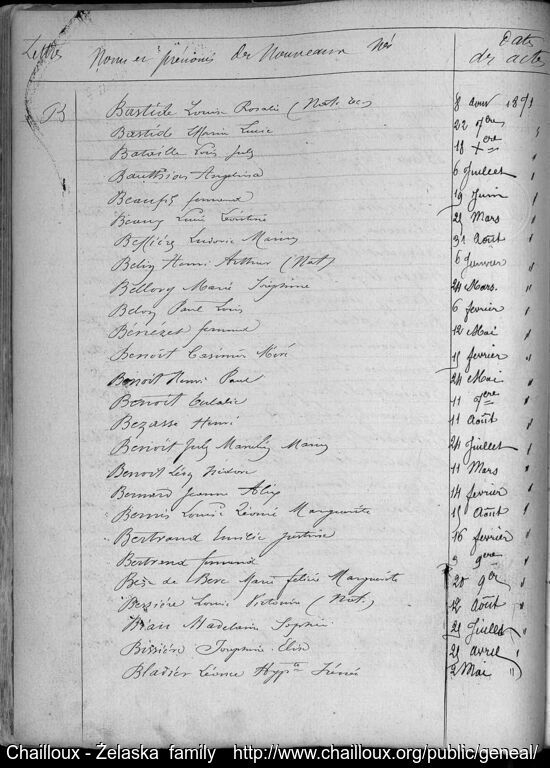 Lettres Noms et prénoms des Nouveaux Nés Date des actes
B Bastide Louise Rosalie (Nat. rec) 8 avril 1871
Bastide Marie Lucie 22 7bre "
Bataille Louis July 18 Xbre "
Bauthion Angelina 6 Juillet "
Beaufils fernand 19 Juin "
Beaux Louis 25 Mars "
Ludovic Marius 31 Août "
Belin Henri Arthur (Nat) 6 Janvier "
Bellory Marie Joséphine 24 Mars "
Belon Paul Louis 6 fevrier "
Bénézet fernand 12 Mai "
Benoit Casimir 15 fevrier "
Benoit Henri Paul 24 Mai "
Benoit Eulalie 11 7bre "
Bezasse Henri 11 Août "
Benoit July Marius 24 Juillet "
Benoit Isidore 11 Mars "
Bernard Jeanne Alix 14 fevrier "
Bernis Louise Léonie Marguerite 15 Août "
Bertrand Justine 16 fevrier "
Bertrand fernand 9bre "
de Berc Marie felicie Marguerite 20 9bre "
Bessière Louis Victorin (Nat.) 12 Août "
Madelaine Sophie 25 Juillet "
Bissière Josephine Elise 25 avril "
Bladier Léonce Hyppte Irénée 2 Mai "
Chailloux - Želaska family http://www.chailloux.org/public/geneal/